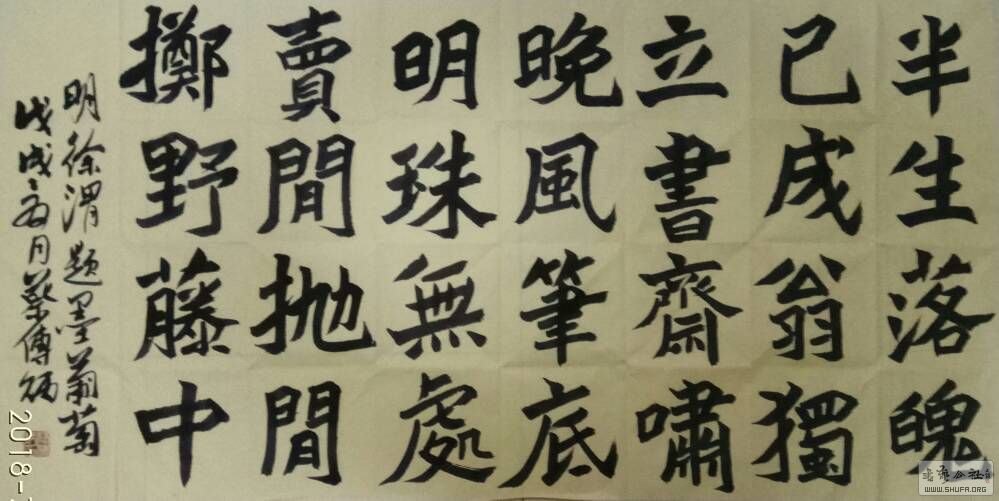 半生落魄
已成翁獨
立書齋嘯
晚風筆底
明珠無處
賣閒抛閒
擲野藤中
明徐渭题墨葡萄
戊戌
月蔡傳炳
2018-
WWW.SHUFA.ORG